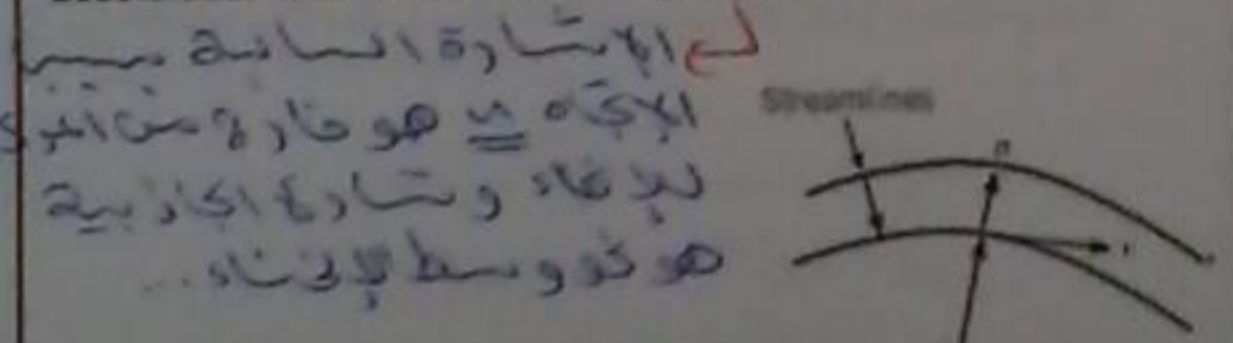 الإشارة السالبة بسبب
الإتجاه n هو خارج من المركز
للإنحناء وتسارع الجاذبية
هو نحو وسط الإنحناء...
Streamlines
n
s